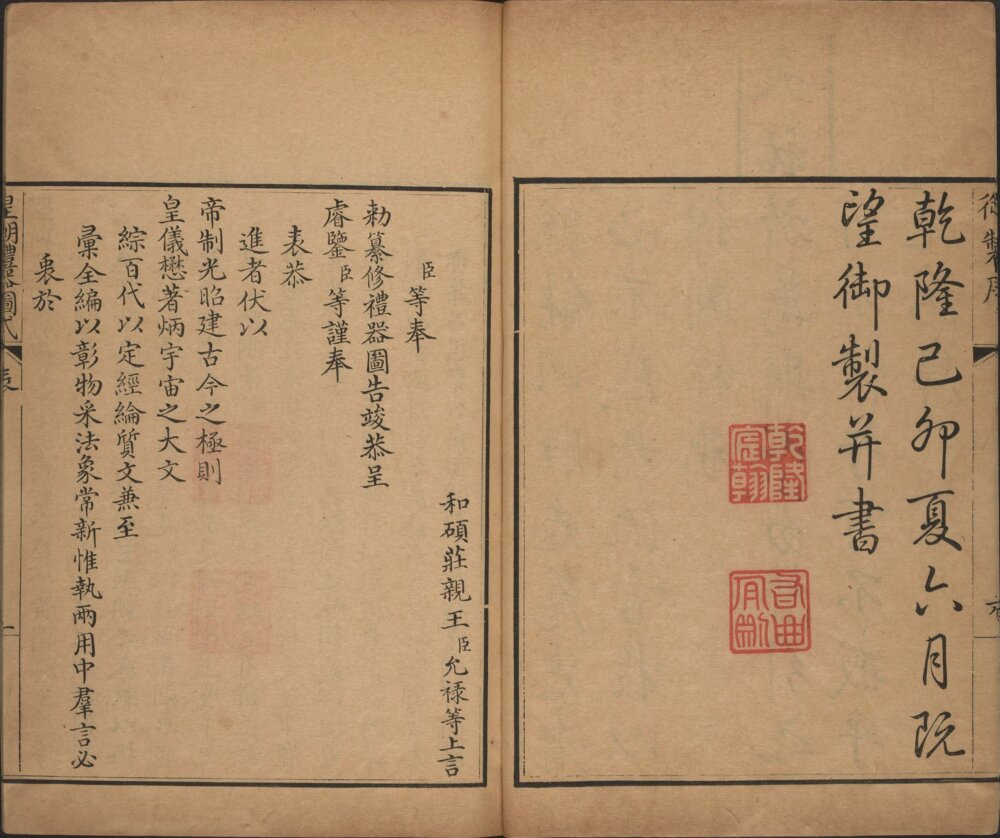 御製序
乾隆己卯夏六月既
望御製并書
乾隆
宸翰
和碩莊親王臣允禄等上言
臣等奉
勅纂修禮器圖告竣恭呈
睿鑑臣等謹奉
表恭
進者伏以
帝制光昭建古今之極則
皇儀懋著炳宇宙之大文
綜百代以定經綸質文兼至
彙全編以彰物采法象常新惟執兩用中羣言必
衷於
皇朝禮器圖式
表
一